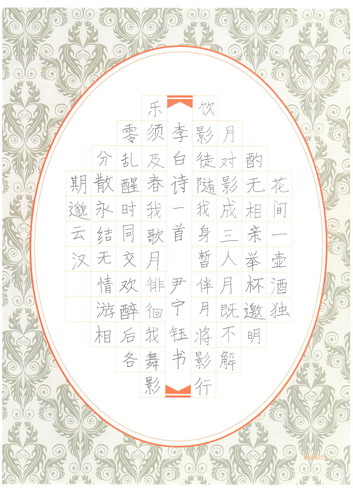 花间一壶酒独
酌无相亲举杯邀明
月对影成三人月既不解
饮影徒随我身暂伴月将影行
李白诗一首 尹宁钰书
乐须及春我歌月徘徊我舞影
零乱醒时同交欢醉后各
分散永结无情游相
期邈云汉